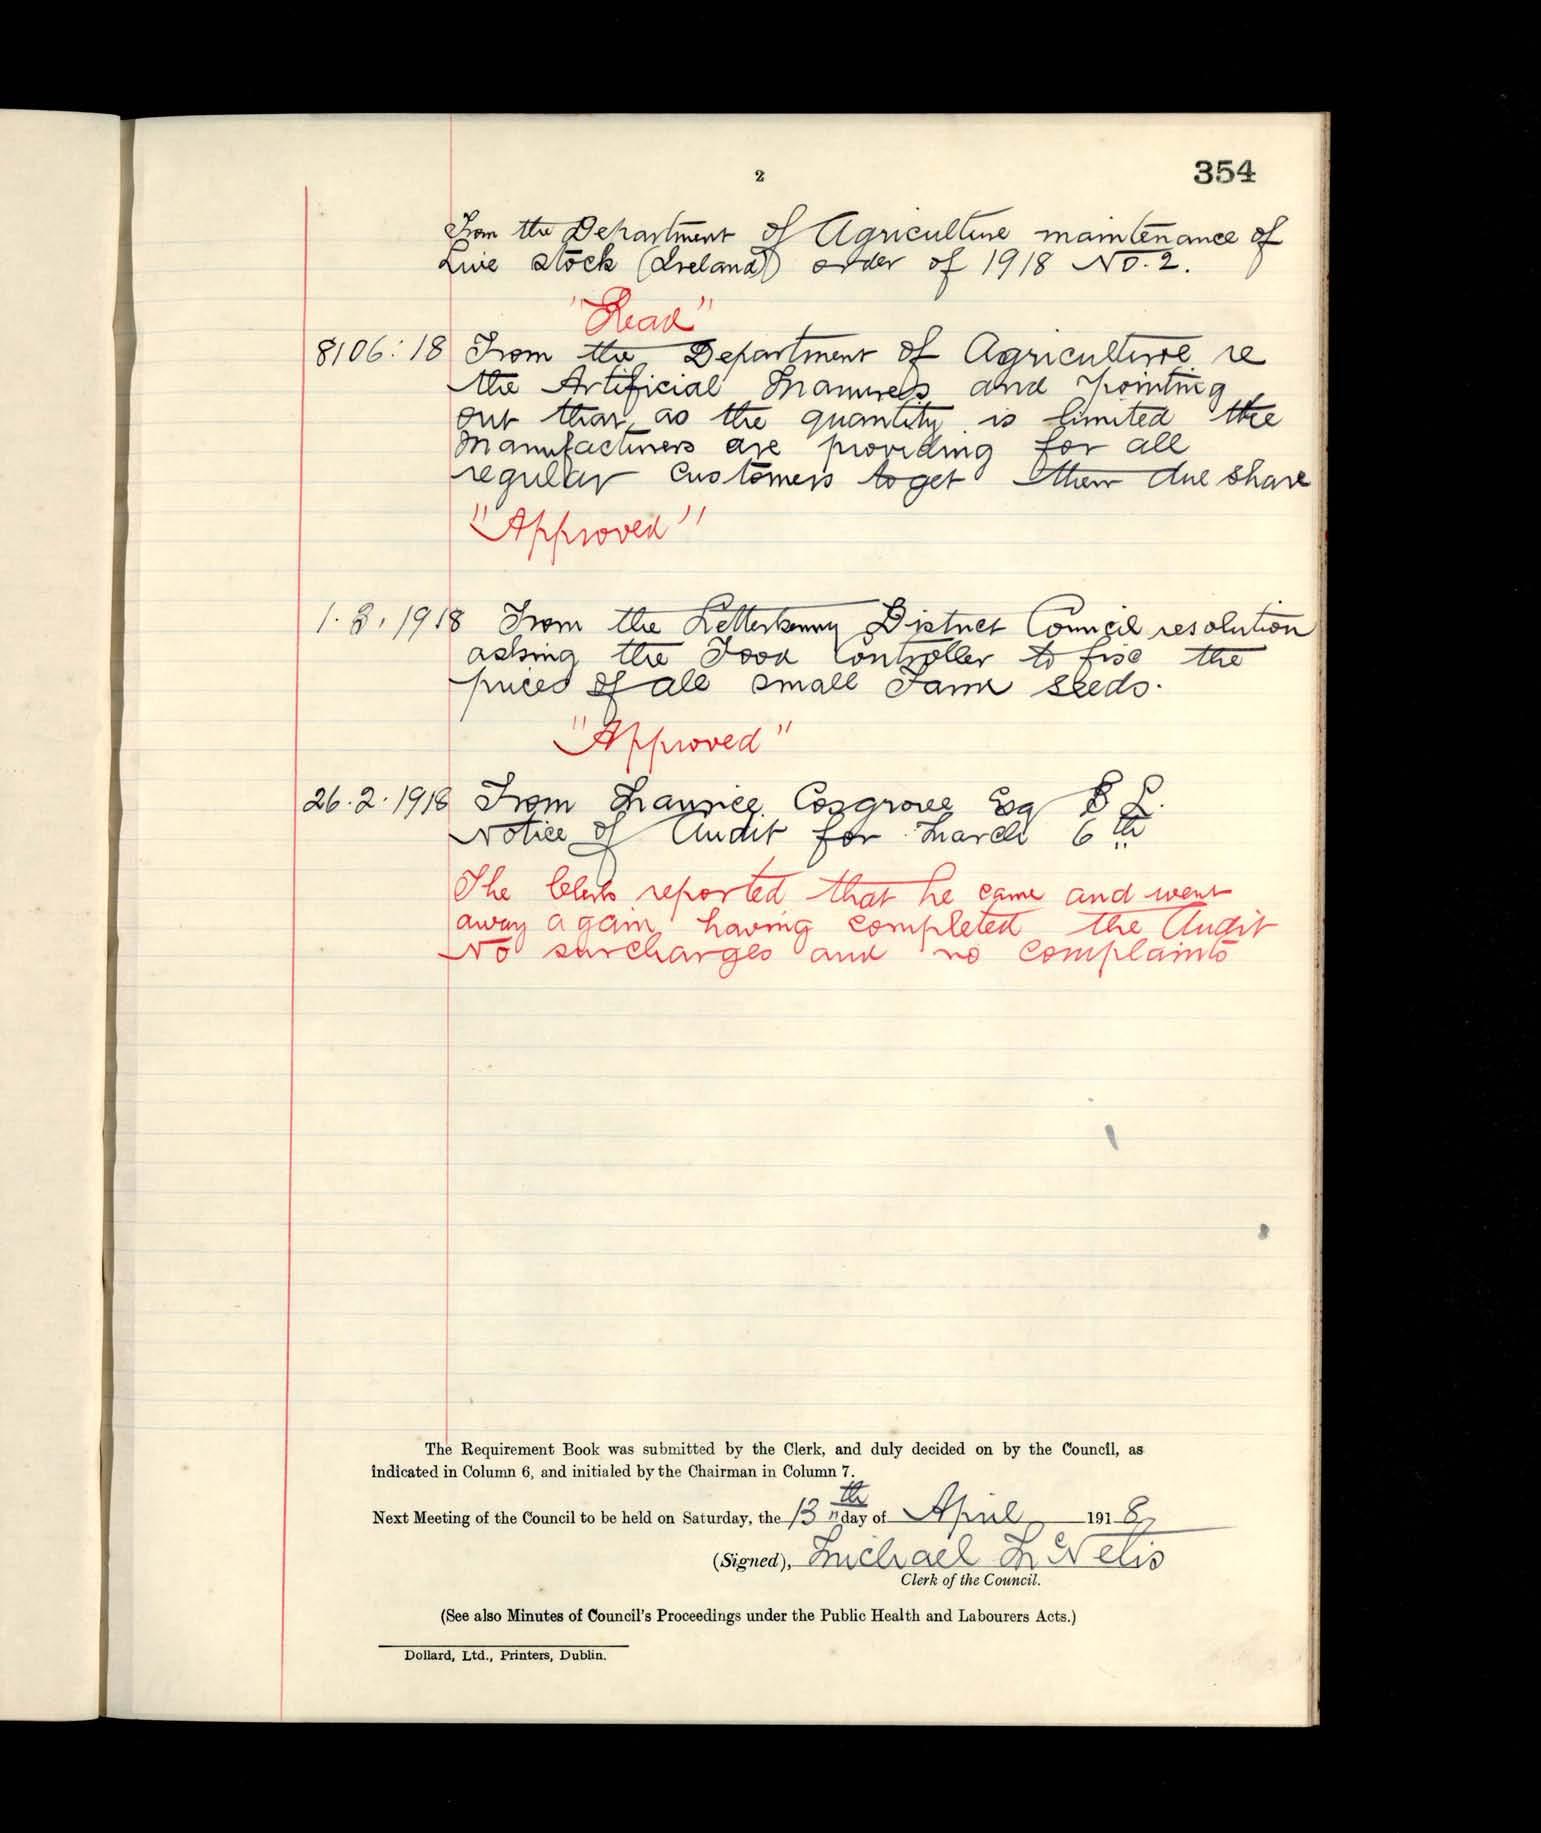 2
354
From the Department of Agriculture maintenance of
Live stock (Ireland) order of 1918 No. 2.
"Read"
8106:18 From the Department of Agriculture re
the Artificial Manures and pointing
out that as the quantity is limited the
Manufacturers are providing for all
regular Customers to get their due share
"Approved"
1.3.1918 From the Letterkenny District Council resolution
asking the Food Controller to fix the
prices of all small Farm seeds.
"Approved"
26.2.1918 From Maurice Cosgrove Esq B L.
Notice of Audit for March 6th
The Clerk reported that he came and went
away again having completed the Audit
No surcharges and no complaints
The Requirement Book was submitted by the Clerk, and duly decided on by the Council, as
indicated in Column 6, and initialed by the Chairman in Column 7.
Next Meeting of the Council to be held on Saturday, the 13th day of April 1918
(Signed), Michael McNelis
Clerk of the Council.
(See also Minutes of Council's Proceedings under the Public Health and Labourers Acts.)
Dollard, Ltd., Printers, Dublin.